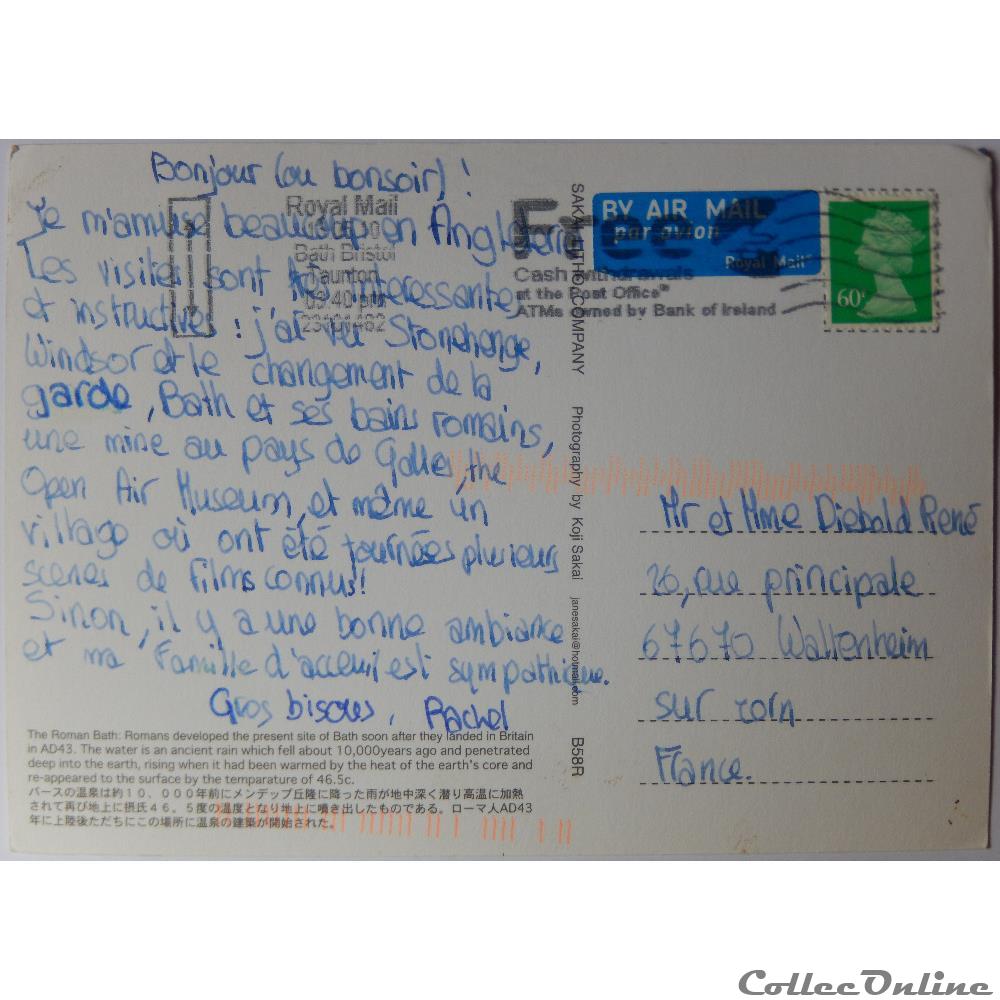 Bonjour (ou bonsoir) !
Je m'amuse beaucoup en Angleterre
Les visites sont très interessantes
et instructives : j'ai vu Stonehenge,
Windsor et le changement de la
garde, Bath et ses bains romains,
une mine au pays de Galles, the
Open Air Museum, et même un
village où ont été tournées plusieurs
scenes de films connus!
Sinon, il y a une bonne ambiance
et ma famille d'acceuil est sympathique.
Gros bisous, Rachel
The Roman Bath: Romans developed the present site of Bath soon after they landed in Britain
in AD43. The water is an ancient rain which fell about 10,000years ago and penetrated
deep into the earth, rising when it had been warmed by the heat of the earth's core and
re-appeared to the surface by the temparature of 46.5c.
バースの温泉は約10,000年前にメンデップ丘隆に降った雨が地中深く潜り高温に加熱
されて再び地上に摂氏46.5度の温度となり地上に噴き出したものである。ローマ人AD43
年に上陸後ただちにこの場所に温泉の建築が開始された。
Royal Mail
Bath Bristol
Taunton
23101482
SAKAI LITHO COMPANY Photography by Koji Sakai janesakai@hotmail.com B58R
BY AIR MAIL
par avion
Royal Mail
Free
Cash withdrawals
at the Post Office®
ATMs owned by Bank of Ireland
60P
Mr et Mme Diebold René
26, rue principale
67670 Waltenheim
sur zorn
France.
CollecOnline